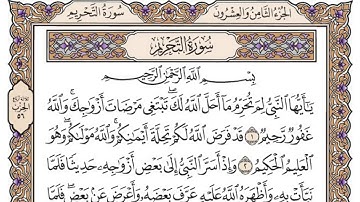 الجُزْءُ الثَّامِنُ وَالعِشْرُونَ
سُورَةُ التَّحْرِيمِ
سُورَةُ التَّحْرِيمِ
بِسْمِ ٱللَّهِ ٱلرَّحْمَٰنِ ٱلرَّحِيمِ
يَٰٓأَيُّهَا ٱلنَّبِيُّ لِمَ تُحَرِّمُ مَآ أَحَلَّ ٱللَّهُ لَكَۖ تَبْتَغِي مَرْضَاتَ أَزْوَٰجِكَۚ وَٱللَّهُ
غَفُورٞ رَّحِيمٞ ١ قَدْ فَرَضَ ٱللَّهُ لَكُمْ تَحِلَّةَ أَيْمَٰنِكُمْۚ وَٱللَّهُ مَوْلَىٰكُمْۖ وَهُوَ
ٱلْعَلِيمُ ٱلْحَكِيمُ ٢ وَإِذْ أَسَرَّ ٱلنَّبِيُّ إِلَىٰ بَعْضِ أَزْوَٰجِهِۦ حَدِيثٗا فَلَمَّا
نَبَّأَتْ بِهِۦ وَأَظْهَرَهُ ٱللَّهُ عَلَيْهِ عَرَّفَ بَعْضَهُۥ وَأَعْرَضَ عَنۢ بَعْضٖۖ فَلَمَّا
الحِزْبُ
٥٦